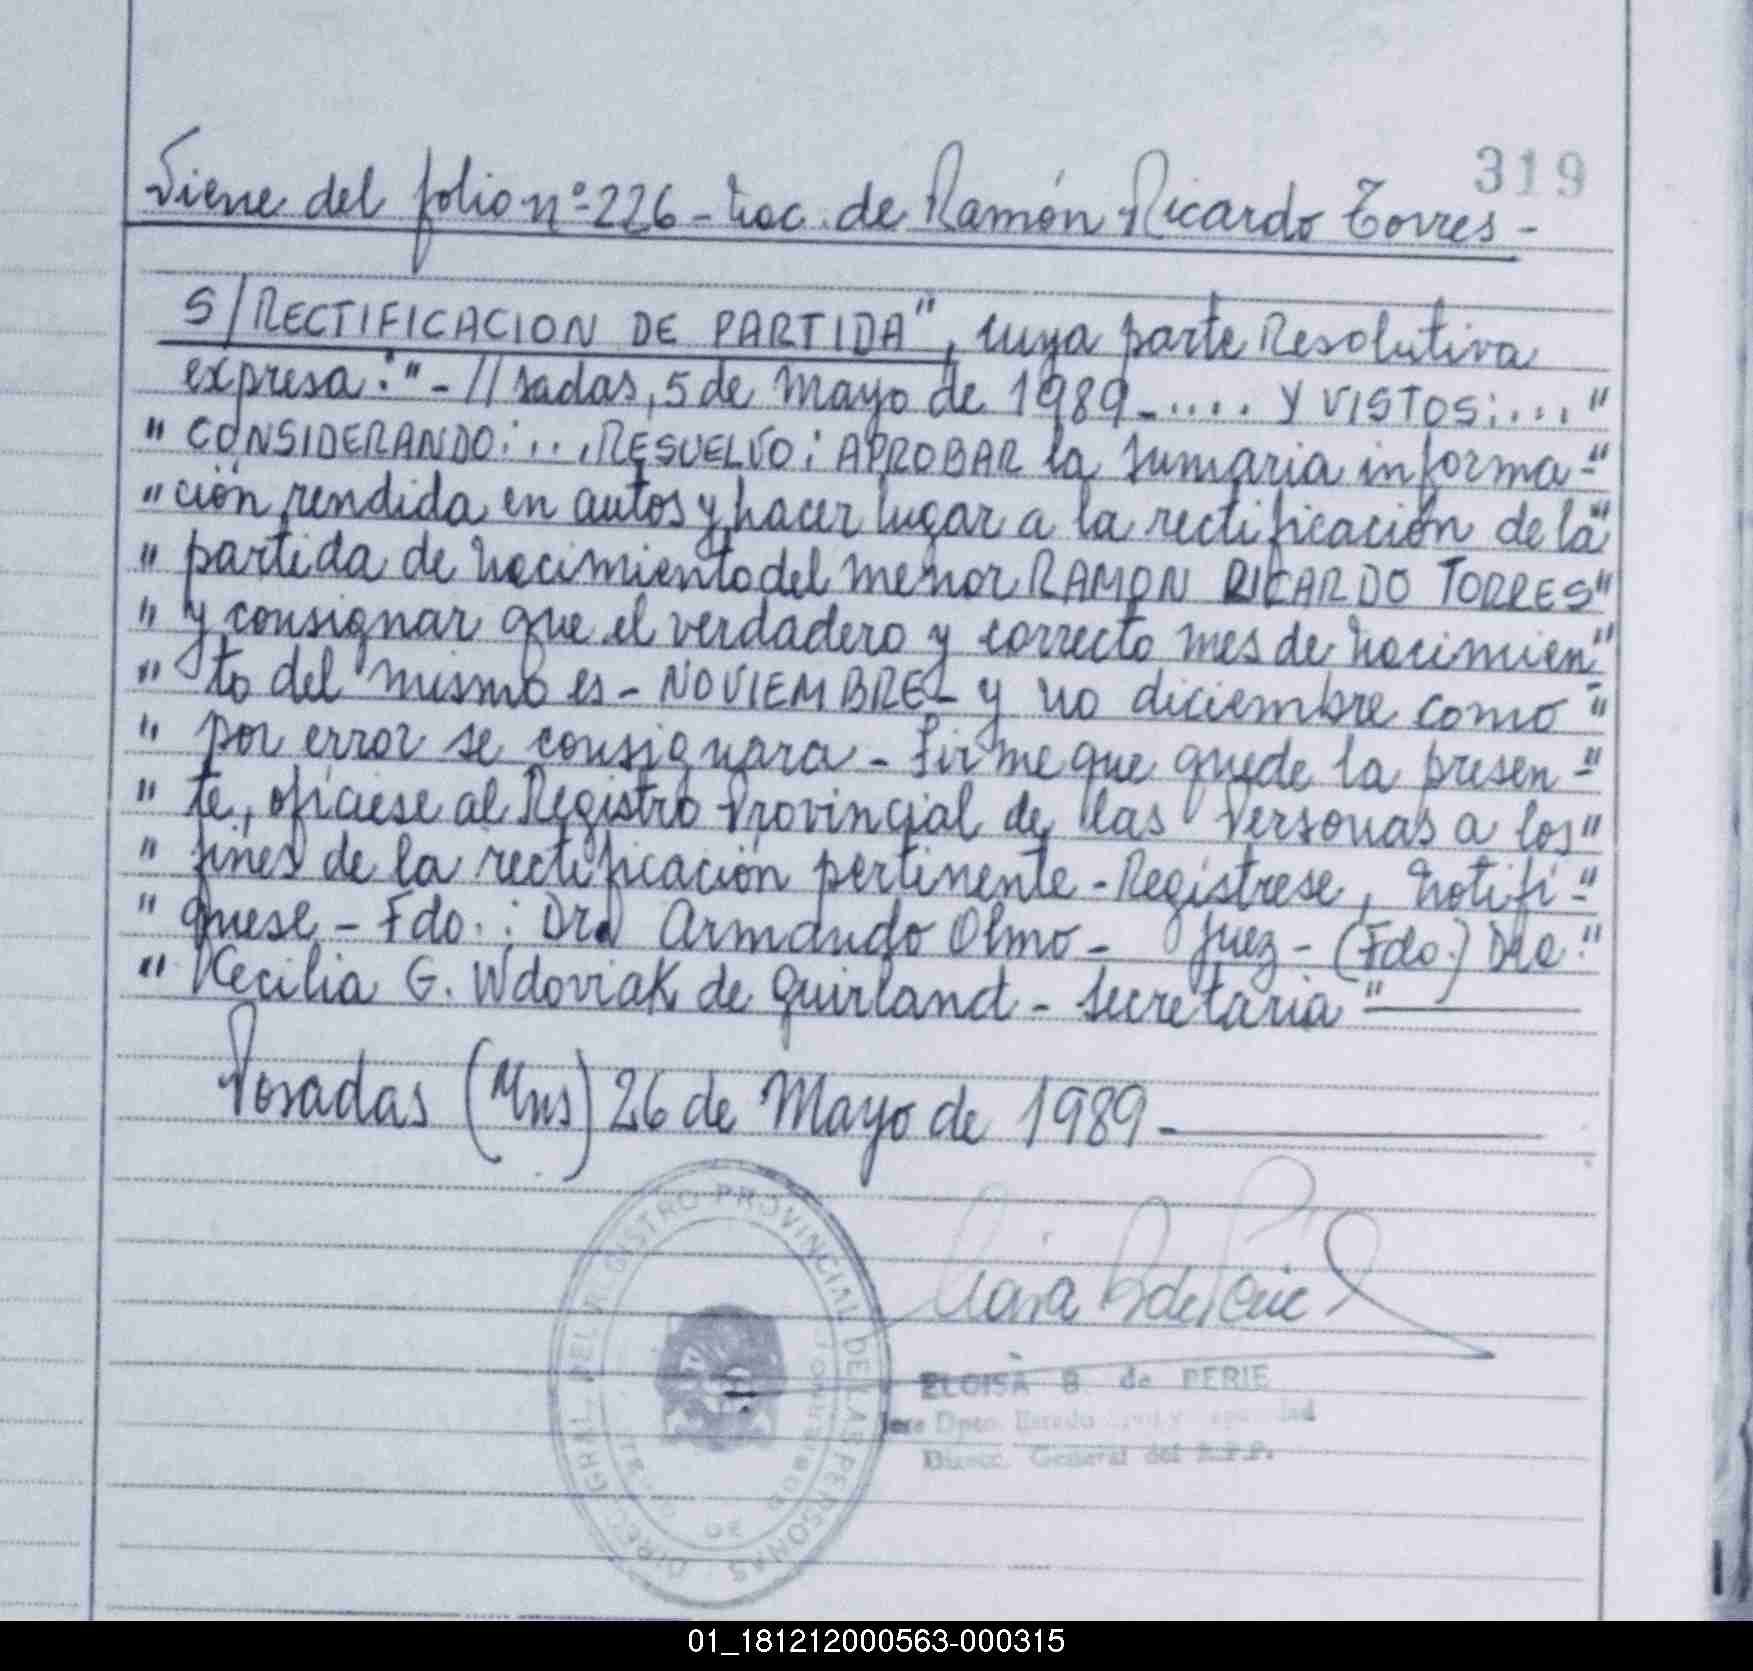 319
Viene del folio nº 226 - Nac. de Ramón Ricardo Torres -
S/RECTIFICACION DE PARTIDA", cuya parte Resolutiva
expresa: "- // sadas, 5 de Mayo de 1989 - .... Y VISTOS: ... "
" CONSIDERANDO: ... RESUELVO: APROBAR la sumaria informa- "
" ción rendida en autos y hacer lugar a la rectificación de la "
" partida de nacimiento del menor RAMON RICARDO TORRES "
" y consignar que el verdadero y correcto mes de nacimien "
" to del mismo es - NOVIEMBRE - y no diciembre como "
" por error se consignara - Firme que quede la presen - "
" te, ofíciese al Registro Provincial de las Personas a los "
" fines de la rectificación pertinente - Regístrese, notifí - "
" quese - Fdo.: Dr. Armando Olmo - Juez - (Fdo.) Dra. "
" Cecilia G. Wdoviak de Guirland - Secretaria "
Posadas (Mns) 26 de Mayo de 1989 -
DIREC. GRAL. DEL REGISTRO PROVINCIAL DE LAS PERSONAS
ELOISA B de PERIE
Jefe Dpto. Estado Civil y
Direcc. General del R.P.P.
01_181212000563-000315